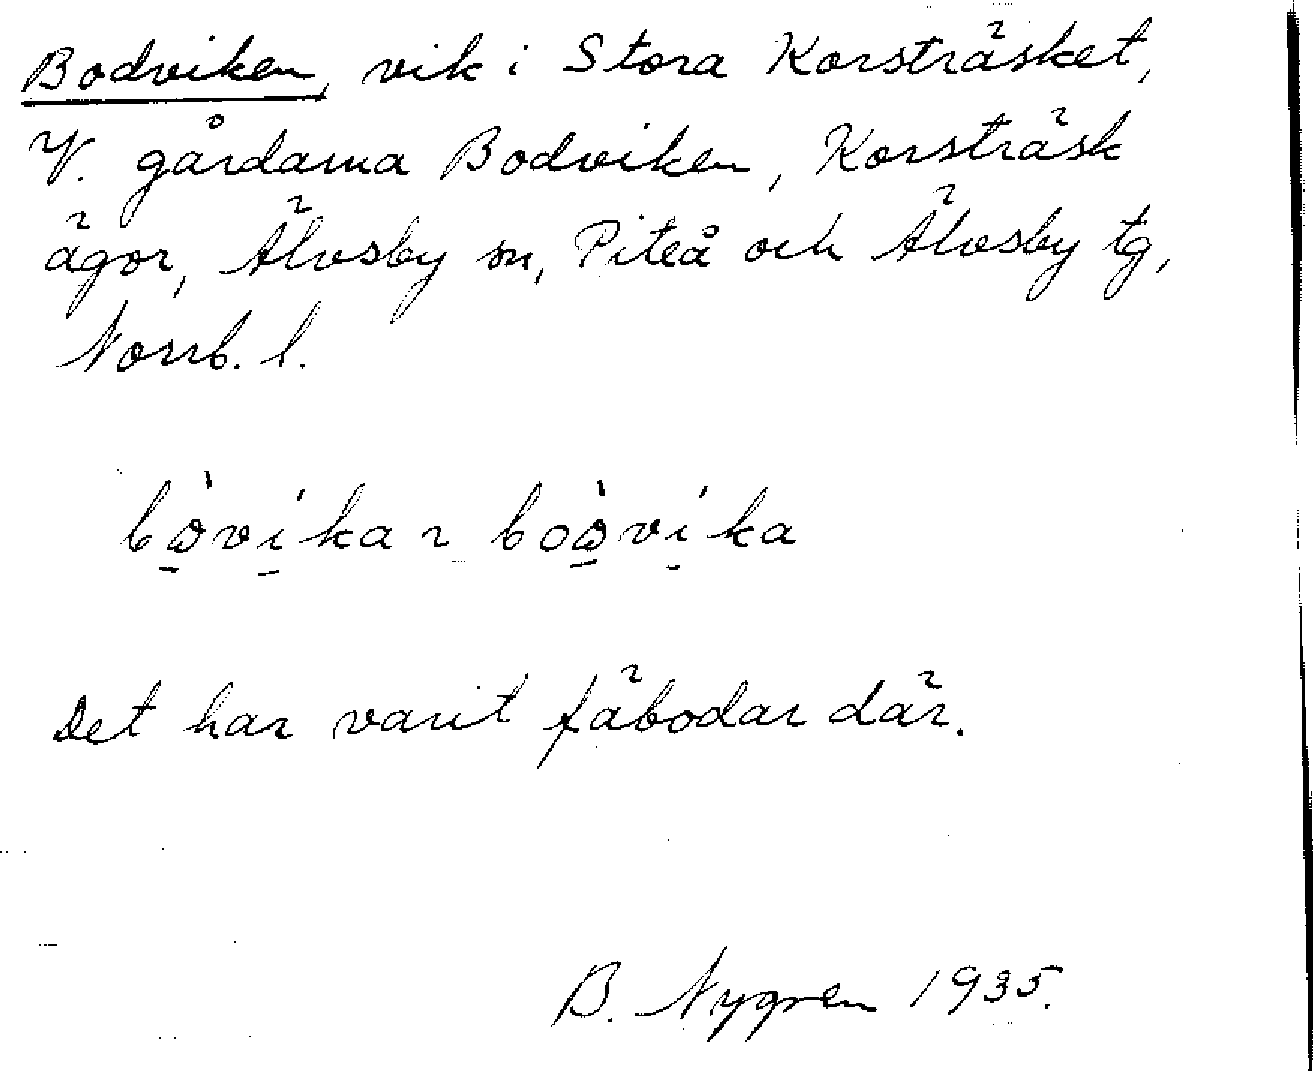 Bodviken, vik i Stora Korsträsket,
V. gårdarna Bodviken, Korsträsk
ägor, Älvsby sn, Piteå och Älvsby tg,
Norrb. l.
Det har varit fäbodar där.
B. Nygren 1935.